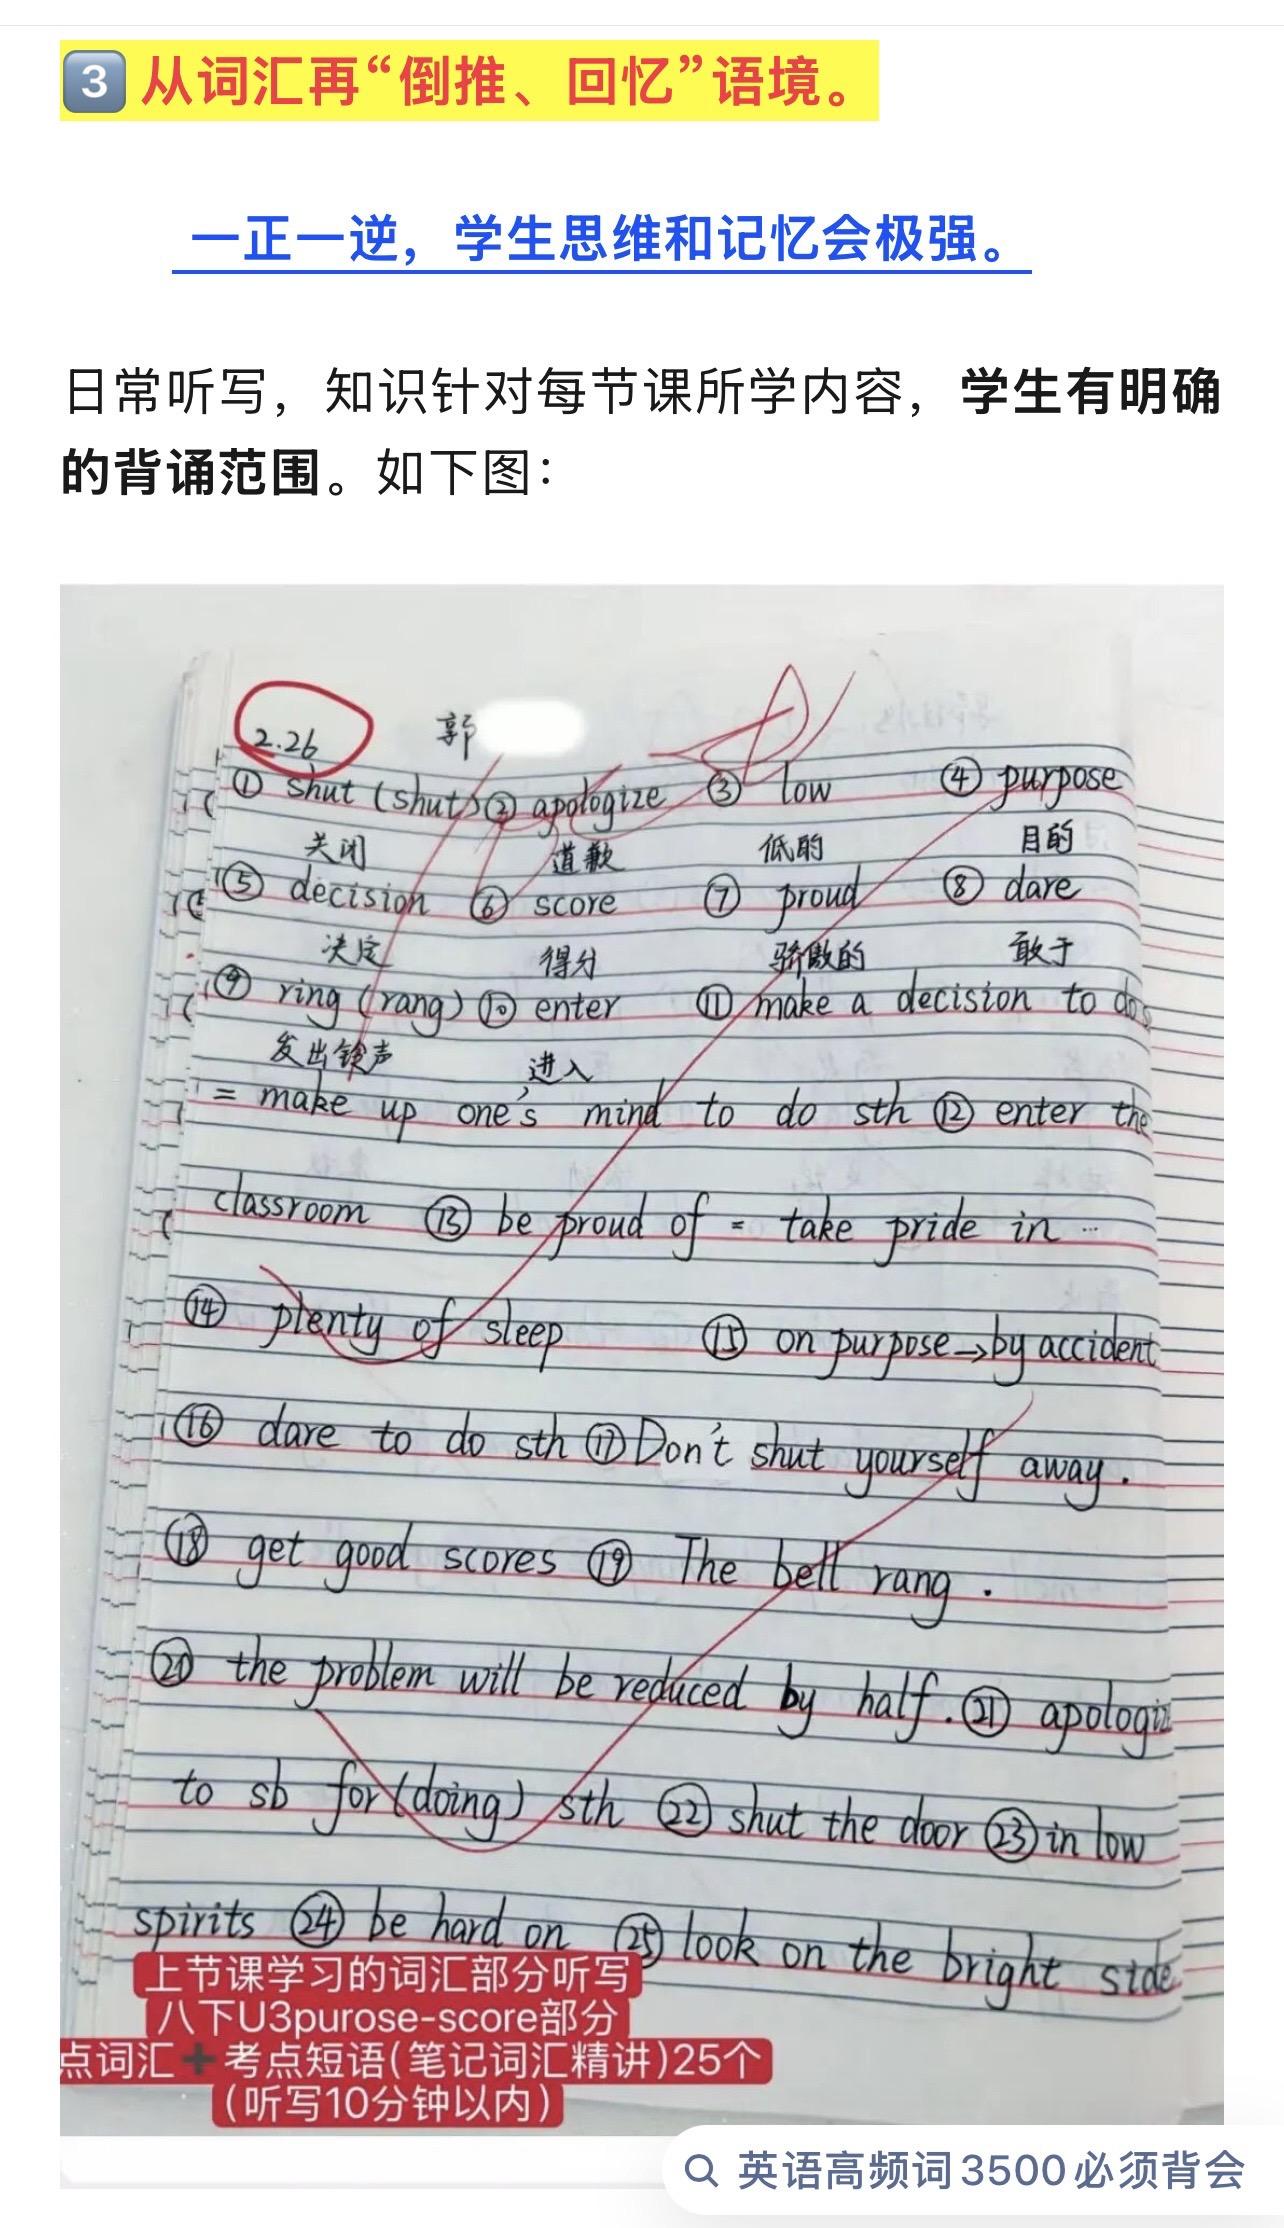 3 从词汇再“倒推、回忆”语境。
一正一逆，学生思维和记忆会极强。
日常听写，知识针对每节课所学内容，学生有明确
的背诵范围。如下图：
2.26 郭
① shut (shut) ② apologize ③ low ④ purpose
关闭 道歉 低的 目的
⑤ decision ⑥ score ⑦ proud ⑧ dare
决定 得分 骄傲的 敢于
⑨ ring (rang) ⑩ enter ⑪ make a decision to do
发出铃声 进入
= make up one's mind to do sth ⑫ enter the
classroom ⑬ be proud of = take pride in ...
⑭ plenty of sleep ⑮ on purpose→by accident
⑯ dare to do sth ⑰ Don't shut yourself away.
⑱ get good scores ⑲ The bell rang.
⑳ the problem will be reduced by half. ㉑ apologiz
to sb for (doing) sth ㉒ shut the door ㉓ in low
spirits ㉔ be hard on ㉕ look on the bright side
上节课学习的词汇部分听写
八下U3purose-score部分
点词汇➕考点短语(笔记词汇精讲)25个
(听写10分钟以内)
英语高频词3500必须背会